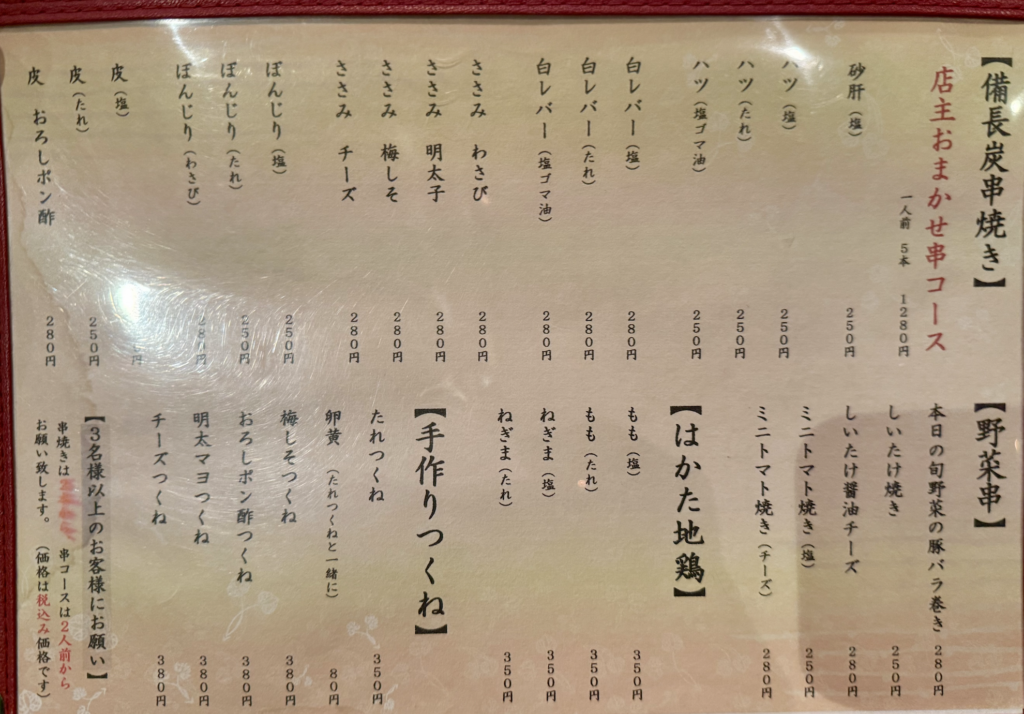 【備長炭串焼き】
店主おまかせ串コース
一人前 5本 1280円
砂肝（塩） 250円
ハツ（塩） 250円
ハツ（たれ） 250円
ハツ（塩ゴマ油） 250円
白レバー（塩） 280円
白レバー（たれ） 280円
白レバー（塩ゴマ油） 280円
ささみ わさび 280円
ささみ 明太子 280円
ささみ 梅しそ 280円
ささみ チーズ 280円
ぼんじり（塩） 250円
ぼんじり（たれ） 250円
ぼんじり（わさび） 280円
皮（塩） 円
皮（たれ） 250円
皮 おろしポン酢 280円
【野菜串】
本日の旬野菜の豚バラ巻き 280円
しいたけ焼き 250円
しいたけ醤油チーズ 280円
ミニトマト焼き（塩） 250円
ミニトマト焼き（チーズ） 280円
【はかた地鶏】
もも（塩） 350円
もも（たれ） 350円
ねぎま（塩） 350円
ねぎま（たれ） 350円
【手作りつくね】
たれつくね 350円
卵黄（たれつくねと一緒に） 80円
梅しそつくね 380円
おろしポン酢つくね 380円
明太マヨつくね 380円
チーズつくね 380円
【3名様以上のお客様にお願い】
串焼きは 串コースは2人前から
お願い致します。（価格は税込み価格です）